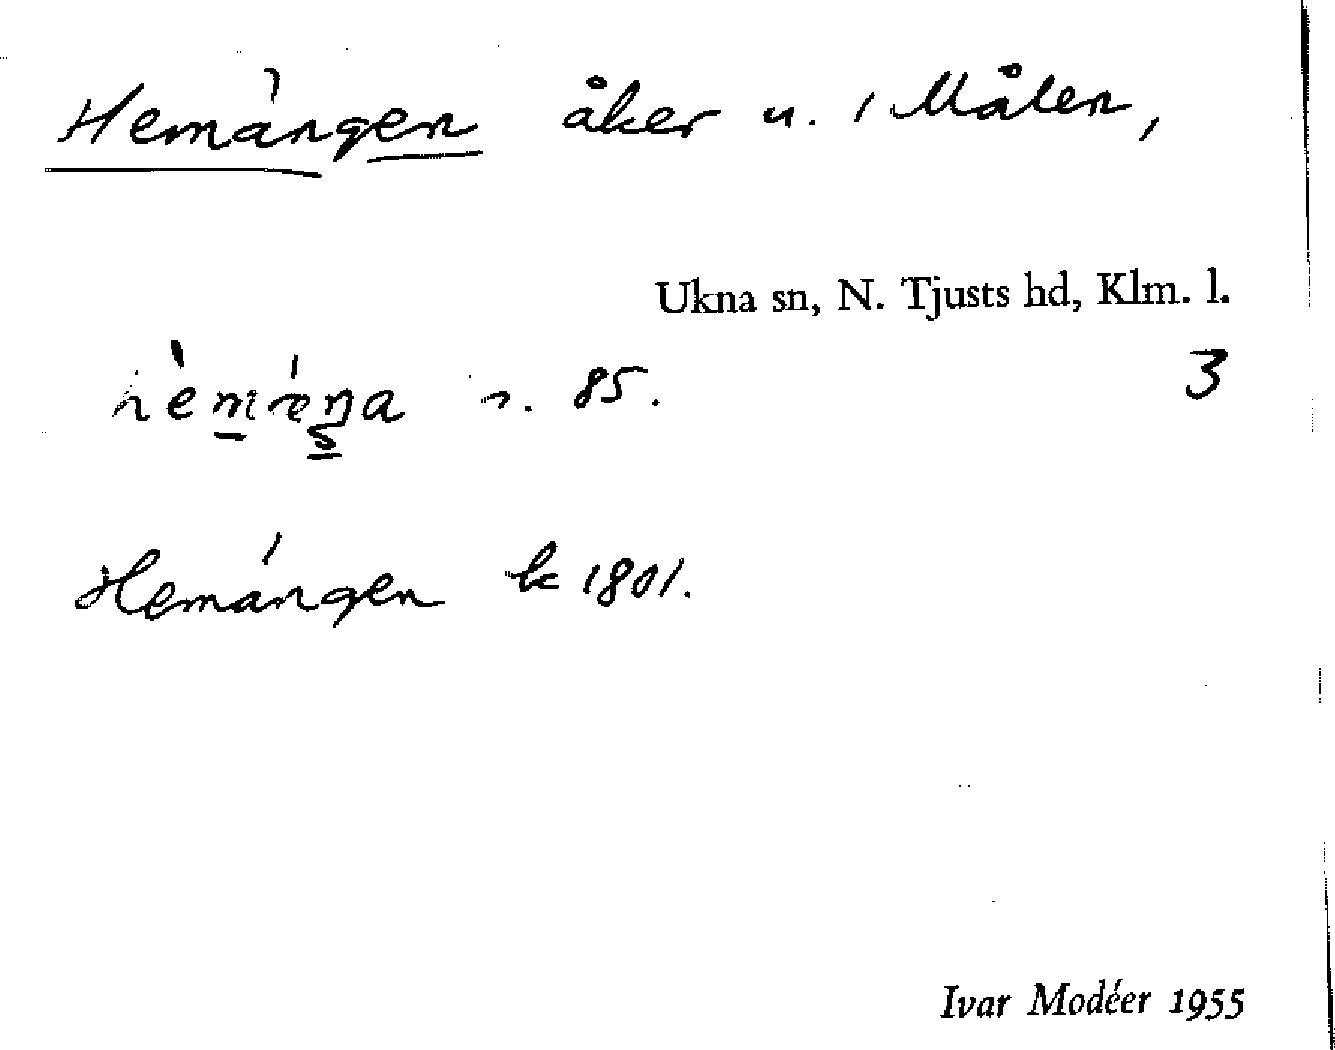 Hemängen åker u. i Målen,
Ukna sn, N. Tjusts hd, Klm. l.
3
hèmæ̀ŋa n. 85.
Hemängen lc 1801.
Ivar Modéer 1955